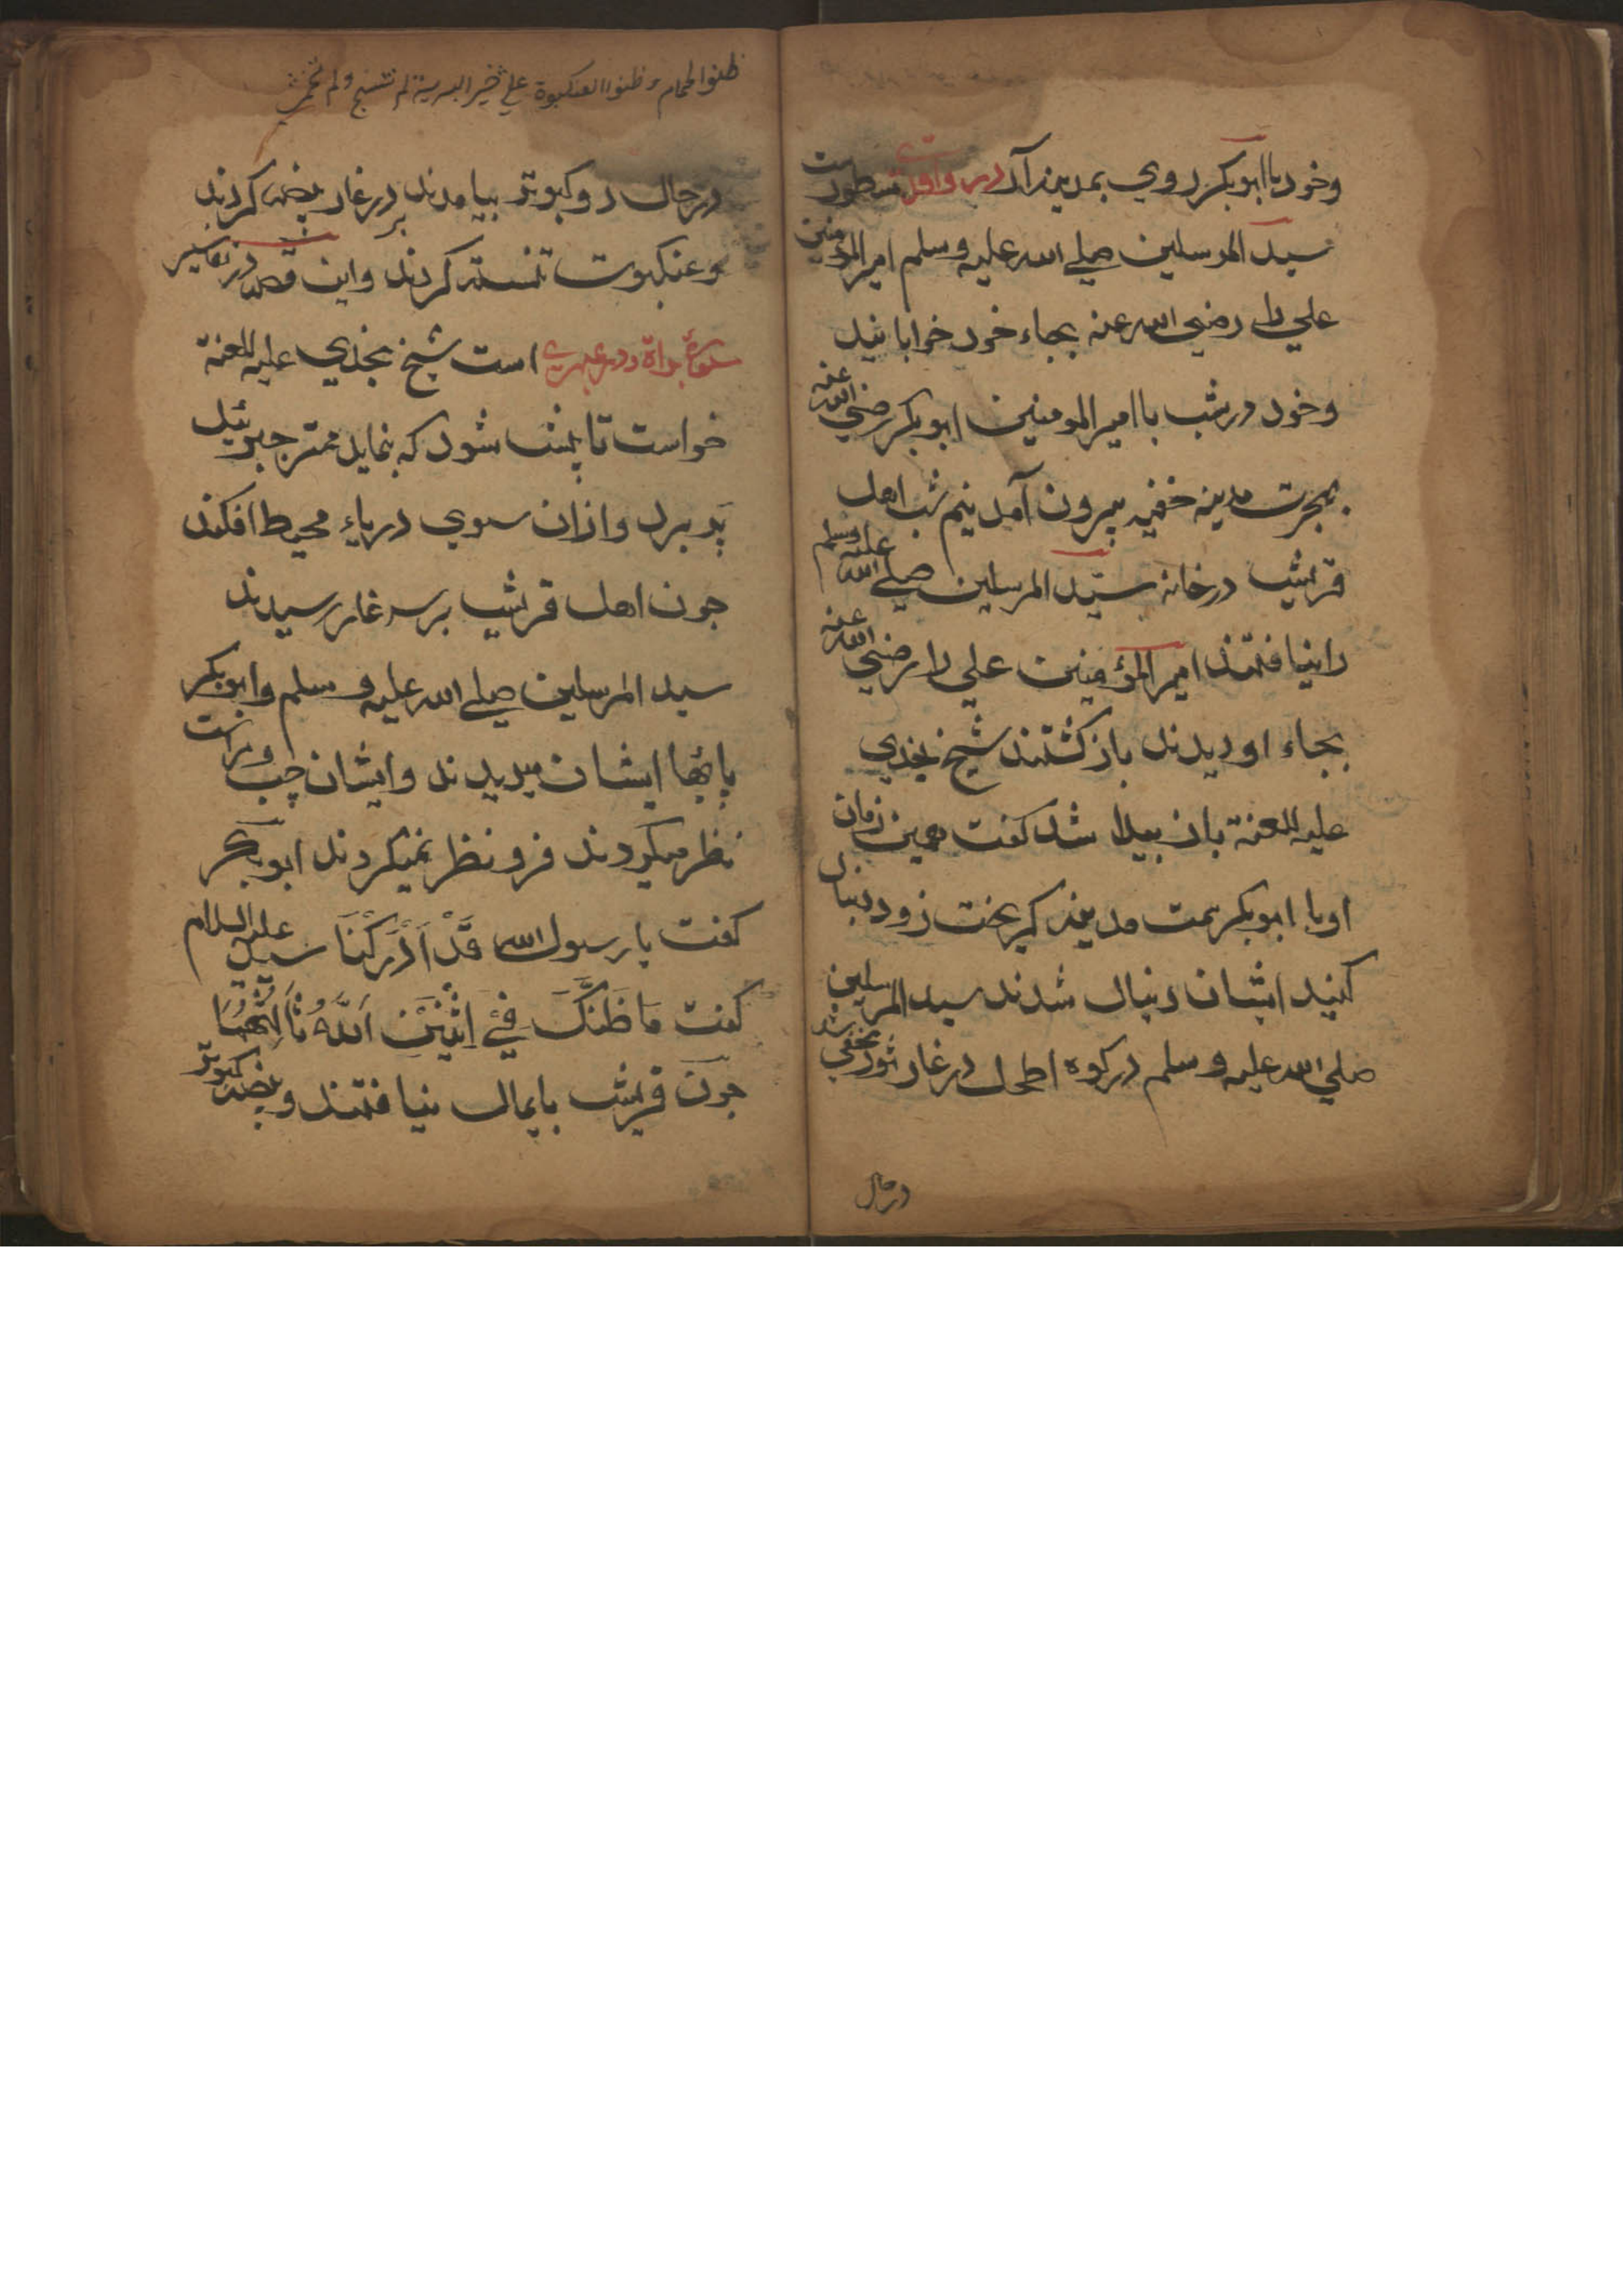 وخود با ابوبکر روي بمدینه آمد در واقدي مسطورست
سید المرسلین صلے الله علیه وسلم امیر المومنین
علي را رضي الله عنه بجاء خود خوابانید
وخود در شب با امیر المومنین ابوبکر رضي الله عنه
بهجرت مدینه خفیه بیرون آمد نیم شب اهل
قریش در خانه سیّد المرسلین صلے الله علیه وسلم
را نیافتند امیر المؤمنین علي را رضي الله عنه
بجاء او دیدند باز کشتند شیخ نجدي
علیه اللعنة بازن پیدا شد کفت همین زمان
او با ابوبکر سمت مدینه کریخت زود دنبال
کنید ایشان دنبال شدند سید المرسلین
صلي الله علیه وسلم در کوه اطحل در غار ثور مخفي شد
درحال
ظنوا الحمام وظنوا العنكبوة علی خیر البریة لم تنسج ولم تحم
درحال دو کبوتر بیامدند بر در غار بیضه کردند
وعنکبوت تنسته کردند واین قصه در تفاسیر
سورة براة است شیخ نجدي علیه اللعنة
خواست تا پیش شود که بنماید مهتر جبرئیل
پر برد وازان سوي دریاء محیط افکند
چون اهل قریش بر سر غار رسیدند
سید المرسلین صلے الله علیه وسلم وابوبکر
پایها ایشان میدیدند وایشان چپ وراست
نظر میکردند فرو نظر نمیکردند ابوبکر
کفت یا رسول الله قَدْ اَدْرَکْنَا سید علیه السلام
کفت مَا ظَنُّکَ فِي اِثْنَیْنِ اَللّٰهُ ثَالِثُهُمَا
چون قریش پایمال نیافتند وبیضه کبوتر